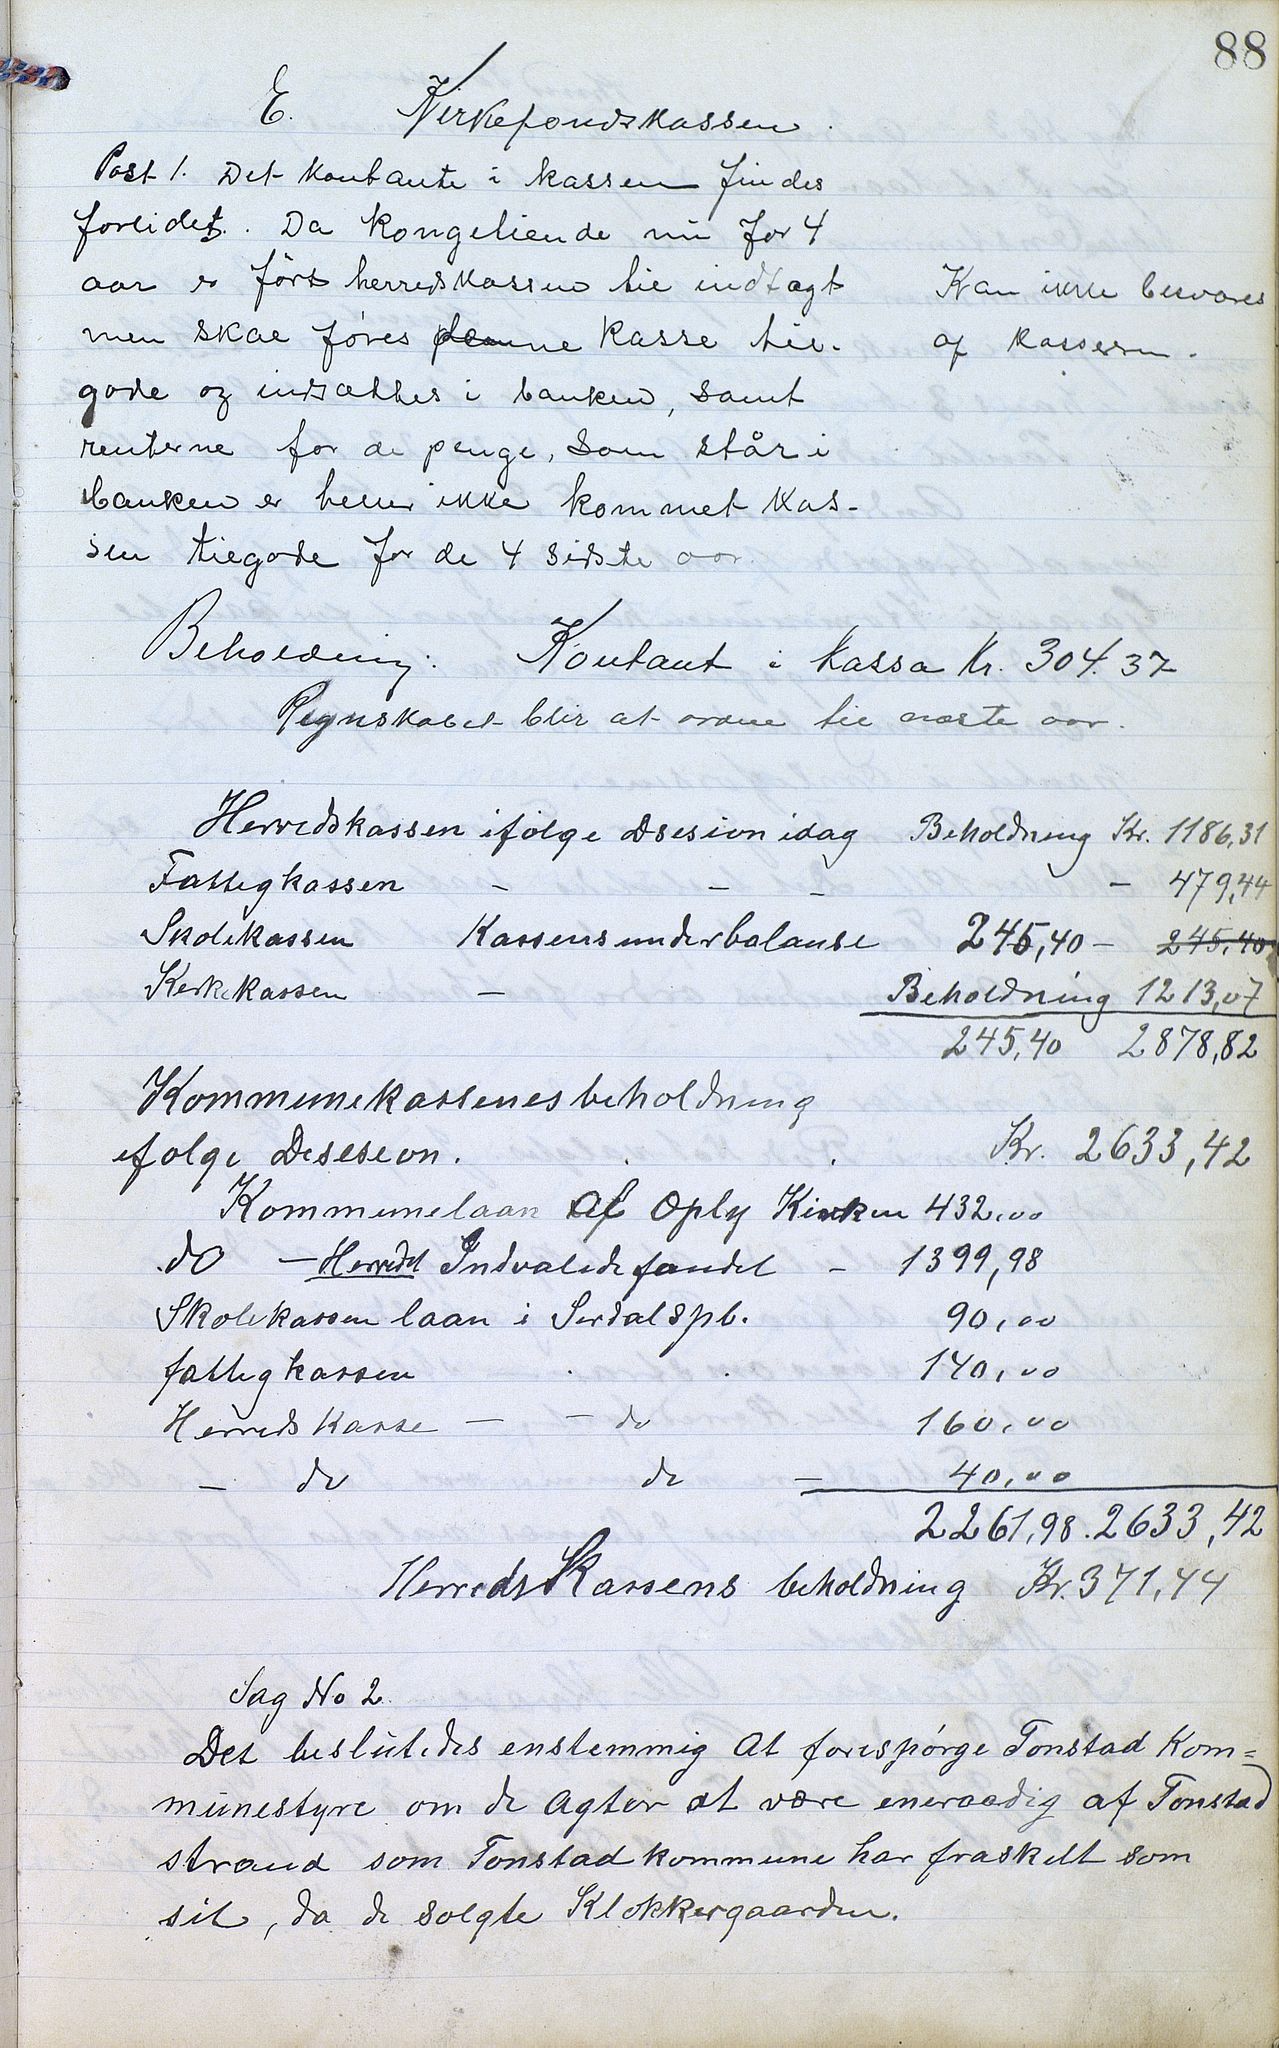 88
E. Kirkefondskassen.
Post 1. Det kontante i kassen findes
forlidet. Da kongetiende nu for 4
aar er ført herredskassen til indtægt
men skal føres denne kasse til-
gode og indsættes i banken, samt
renterne for de penge, som står i
banken er heller ikke kommet kas-
sen tilgode for de 4 sidste aar.
Kan ikke besvares
af kasseren.
Beholdning: Kontant i kassa Kr. 304.37
Regnskabet blir at ordne til næste aar.
Herredskassen ifølge Dsesion idag Beholdning Kr. 1186,31
Fattigkassen - - - - 479,44
Skolekassen Kassens underbalanse 245,40 - 245,40
Kerkekassen - Beholdning 1213,07
245,40 2878,82
Kommunekassenes beholdning
ifølge Desesion. . . Kr. 2633,42
Kommunelaan af Oply Kirken 432,00
do - Herredet Indvalidefondet - 1399,98
Skolekassen laan i Serdal Spb. 90,00
fattigkassen . . 140,00
Herreds Kasse - - do 160,00
- do do - 40,00
2261,98. 2633,42
Herreds Kassens beholdning Kr. 371,44
Sag No 2
Det beslutedes enstemmig at forespørge Tonstad Kom=
munestyre om de agter at være eneraadig af Tonstad
strand som Tonstad kommune har fraskelt som
sit, da de solgte Klokkergaarden.